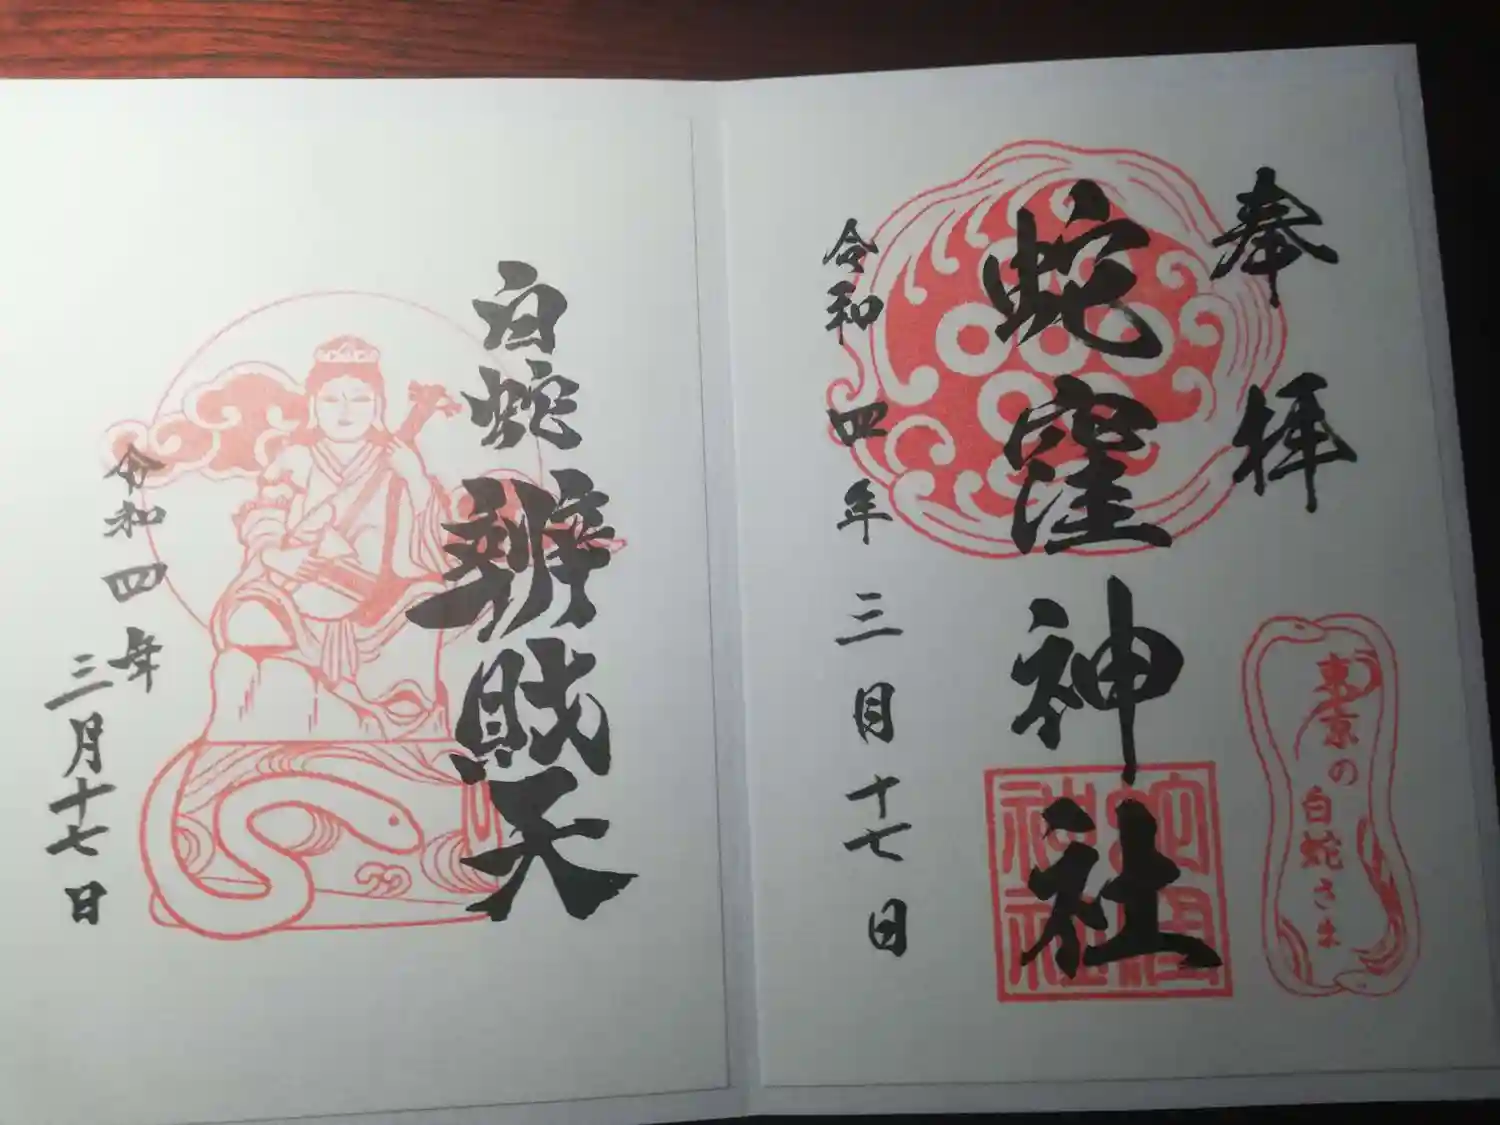 奉拝
蛇窪神社
令和四年三月十七日
東京の白蛇さま
蛇窪神社
白蛇辨財天
令和四年三月十七日